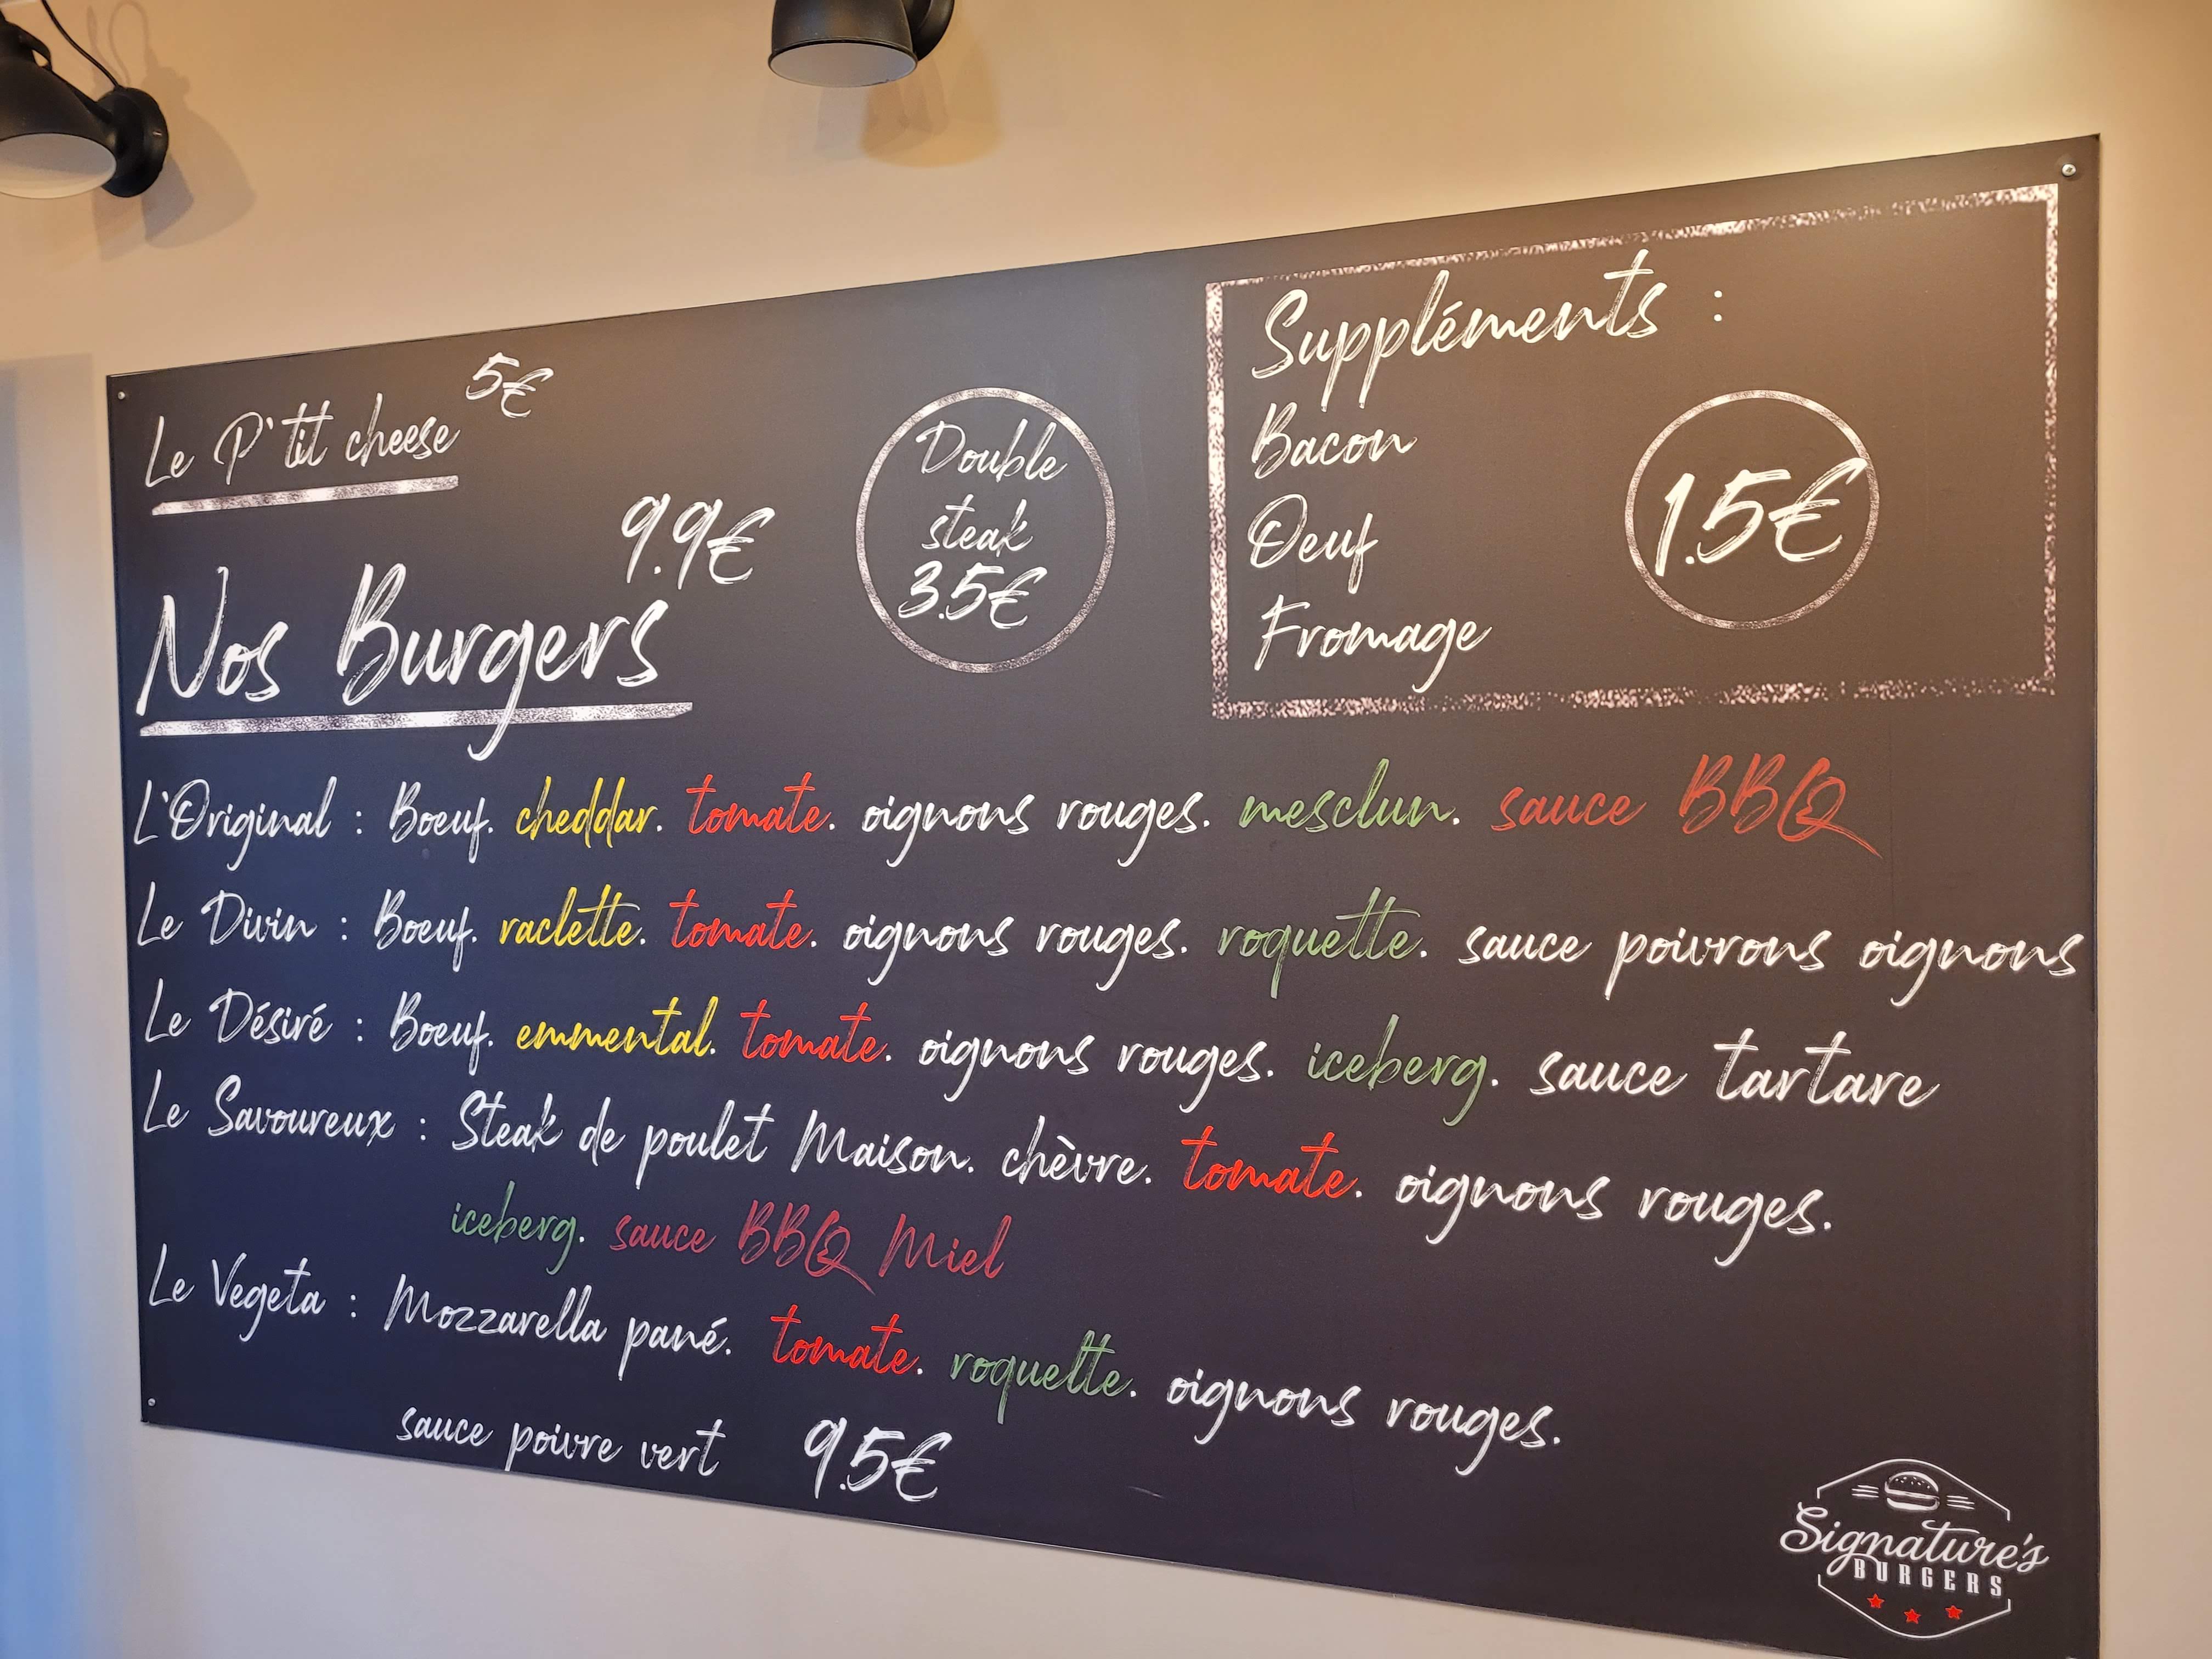 Le P'tit cheese 5€
9.9€
Nos Burgers
Double
steak
3.5€
Suppléments :
Bacon
Oeuf
Fromage
1.5€
L'Original : Boeuf. cheddar. tomate. oignons rouges. mesclun. sauce BBQ
Le Divin : Boeuf. raclette. tomate. oignons rouges. roquette. sauce poivrons oignons
Le Désiré : Boeuf. emmental. tomate. oignons rouges. iceberg. sauce tartare
Le Savoureux : Steak de poulet Maison. chèvre. tomate. oignons rouges.
iceberg. sauce BBQ Miel
Le Vegeta : Mozzarella pané. tomate. roquette. oignons rouges.
sauce poivre vert 9.5€
Signature's
BURGERS